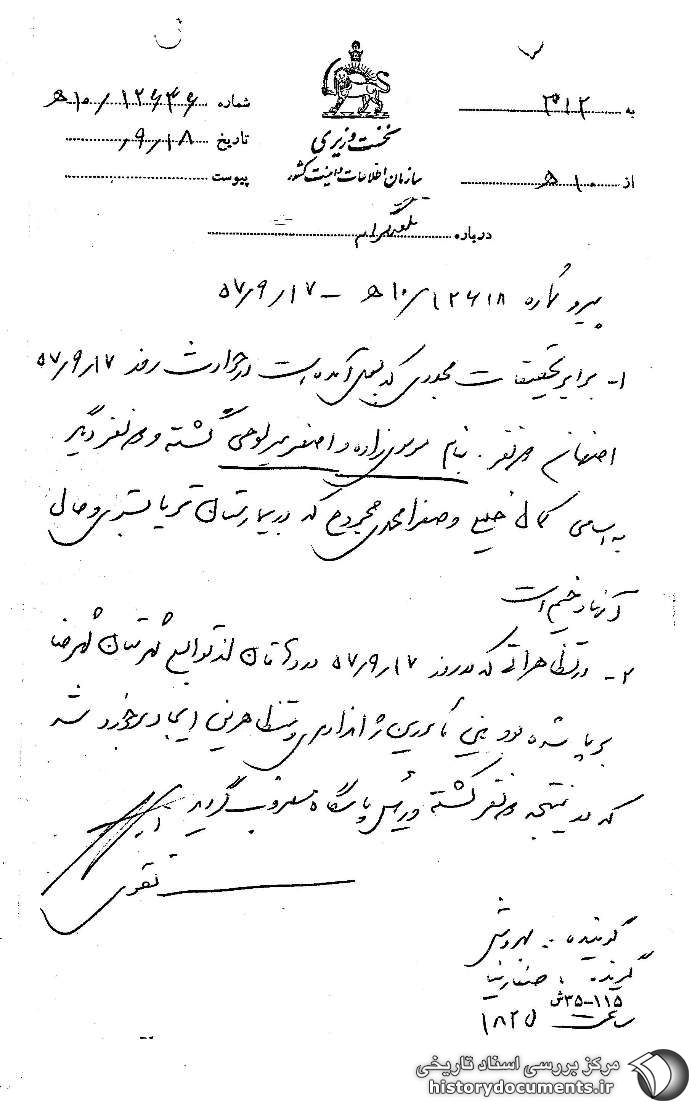 به ۳۱۲
شماره ۱۲۶۴۶/۱۰ﻫ
نخست وزیری
تاریخ ۹/۱۸
از ۱۰ﻫ
سازمان اطلاعات و امنیت کشور
پیوست
درباره تلفنگرام
پیرو شماره ۱۲۶۱۸/۱۰ﻫ - ۵۷/۹/۱۷
۱- برابر تحقیقات مجددی که بعمل آمده است در حوادث روز ۵۷/۹/۱۷
اصفهان دو نفر بنام موسی زاده و اصغر میرلوحی کشته و دو نفر دیگر
به اسامی کمال خلیع و صفرا محمدی مجروح که در بیمارستان ثریا بستری و حال
آنها وخیم است
۲- در تظاهراتی که در روز ۵۷/۹/۱۷ در از توابع شهرستان شهرضا
برپا شده بود بین مأمورین ژاندارمری و متظاهرین ایجاد برخورد شد
که در نتیجه دو نفر کشته و رئیس پاسگاه مضروب گردید
تقوی
گوینده :
گیرنده :
۱۱۵-۳۵ش
ساعت ۱۸۲۵
مرکز بررسی اسناد تاریخی
historydocuments.ir